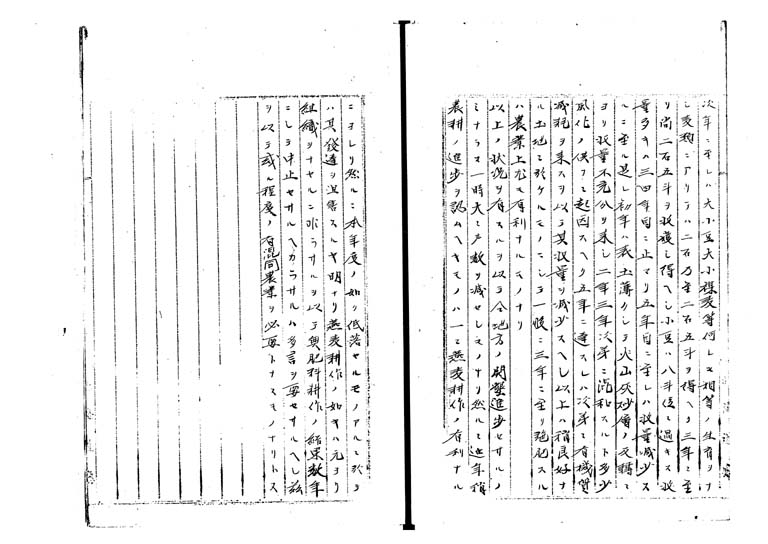 次年ニ至レハ大小豆大小裸麦等何レモ相当ノ生育ヲナ
シ麦類ニアリテハ二石乃至二石五斗ヲ得ヘク三年ニ至
リ尚二石五斗ヲ収穫シ得ヘシ小豆ハ八斗位ニ過キス収
量多キハ三四年目ニ止マリ五年目ニ至レハ収量減少ス
ルニ至ル是レ初年ハ表土薄クシテ火山灰砂層ノ
ヨリ収量不充分ヲ来シ二年三年次第ニ混和スルト多少
風化ノ供フニ起因スヘク五年ニ達スレハ次第ニ有機質
減耗ヲ来スヲ以テ其収量ヲ減少スヘシ以上ハ稍良好ナ
ル土地ニ於ケルモノニシテ一般ニ三年ニ至リ施肥スル
ハ農業上尤モ有利ナルモノナリ
以上ノ状況ヲ有スルヲ以テ全地方ノ開墾進歩セサルノ
ミナラス一時大ニ戸数ヲ減セシモノナリ然ルニ近年稍
農耕ノ進歩ヲ認ムヘキモノハ一ニ燕麦耕作ノ有利ナル
ニヨレリ然ルニ本年度ノ如ク低落セルモノアルニ於テ
ハ其後途ヲ沮害スルヤ明ナリ燕麦耕作ノ如キハ元ヨリ
組織ヲナセルニ非ラサルヲ以テ無肥料耕作ノ結果数年
ニシテ中止セサルヘカラサルハ多言ヲ要セサルヘシ茲
ヲ以テ或ル程度ノ有混同農業ヲ必要トナスモノナリトス